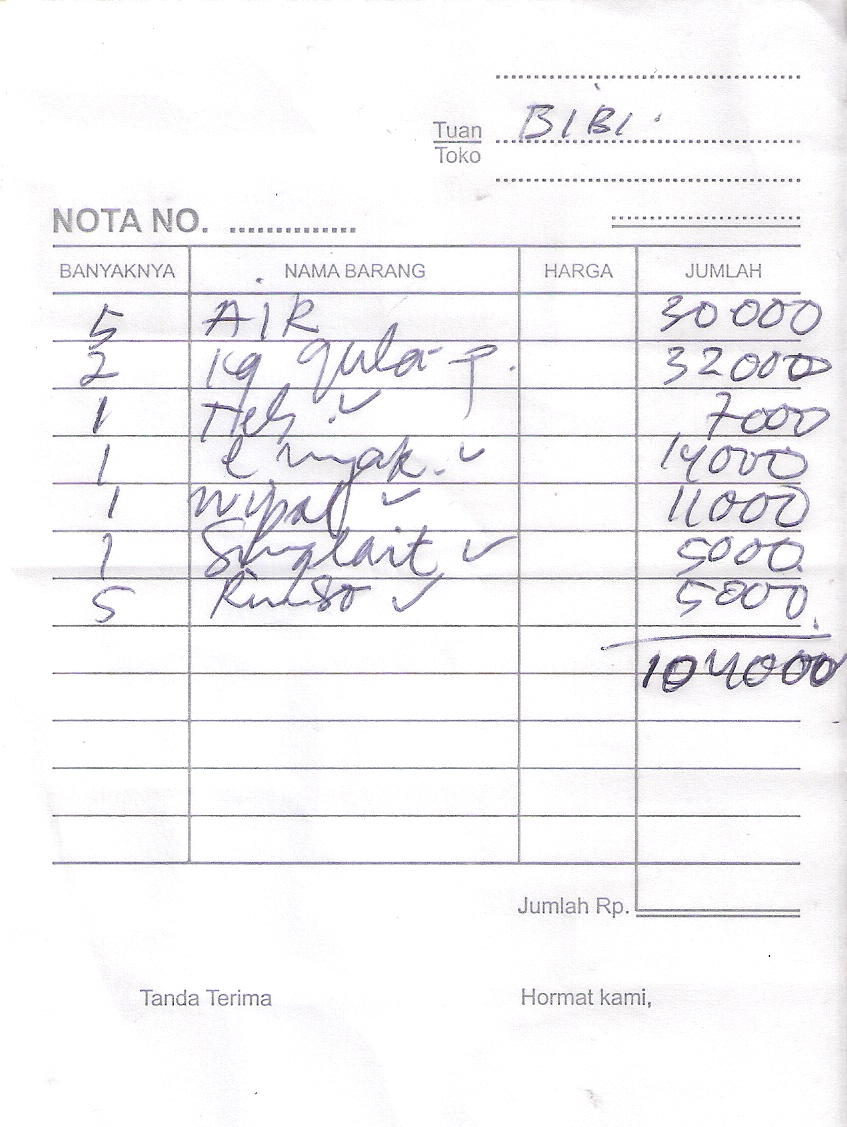 Tuan BIBI
Toko
NOTA NO. ..............
BANYAKNYA NAMA BARANG HARGA JUMLAH
5 AIR 30000
2 kg gula p. 32000
1 7000
1 14000
1 wipol 11000
1 Sunglait 5000
5 Rinso 5000
104000
Jumlah Rp.
Tanda Terima Hormat kami,